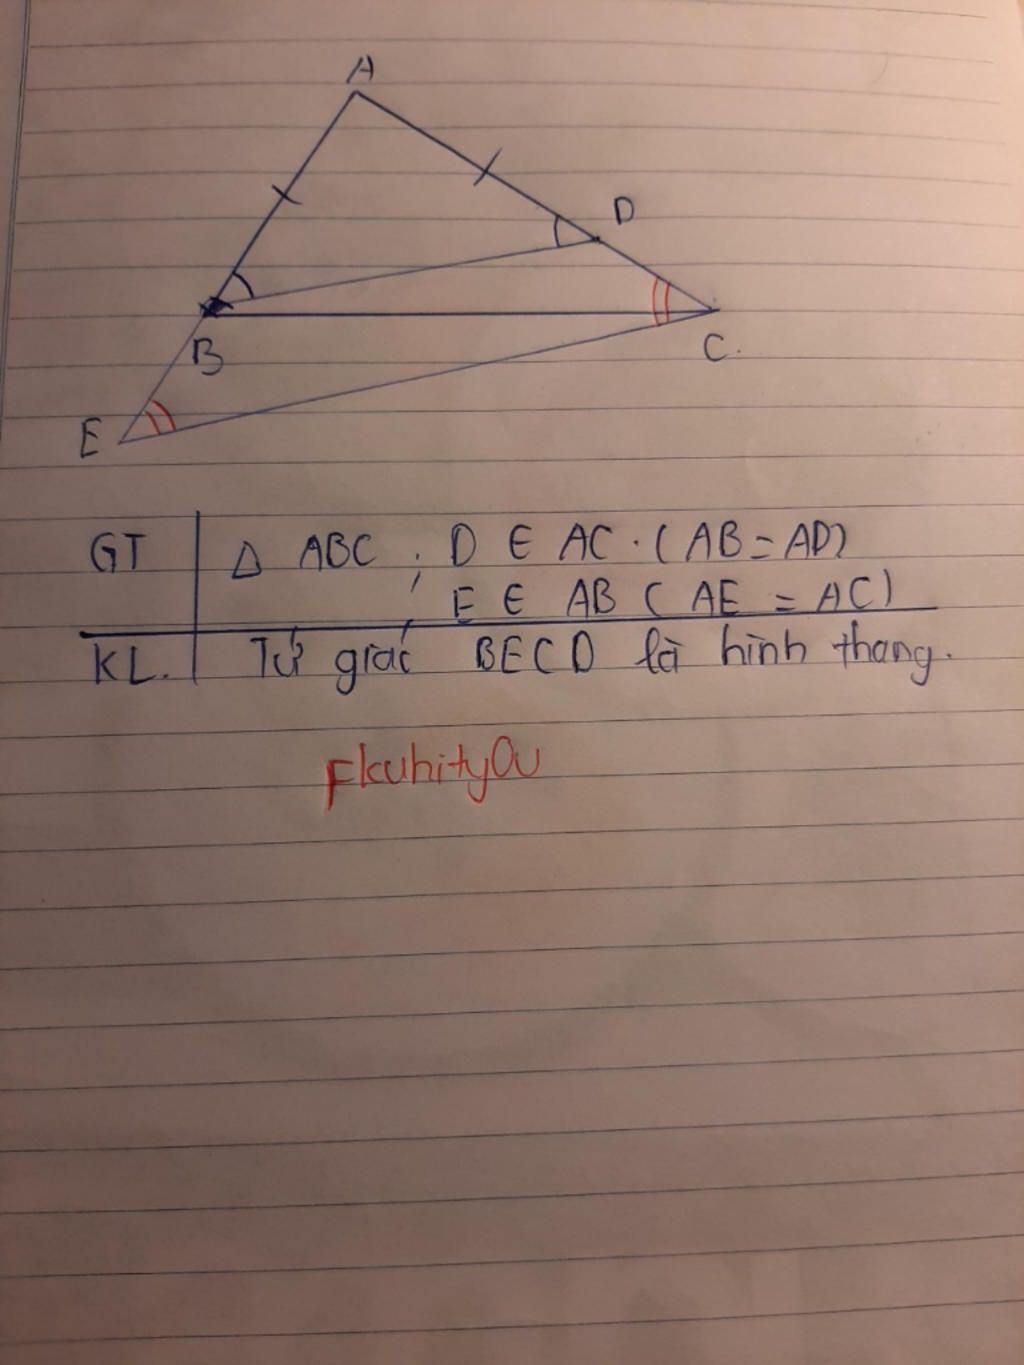 A
D
B
C.
E
GT Δ ABC ; D ∈ AC . (AB = AD)
E ∈ AB ( AE = AC)
KL. Tứ giác BECD là hình thang.
FkuhityOu